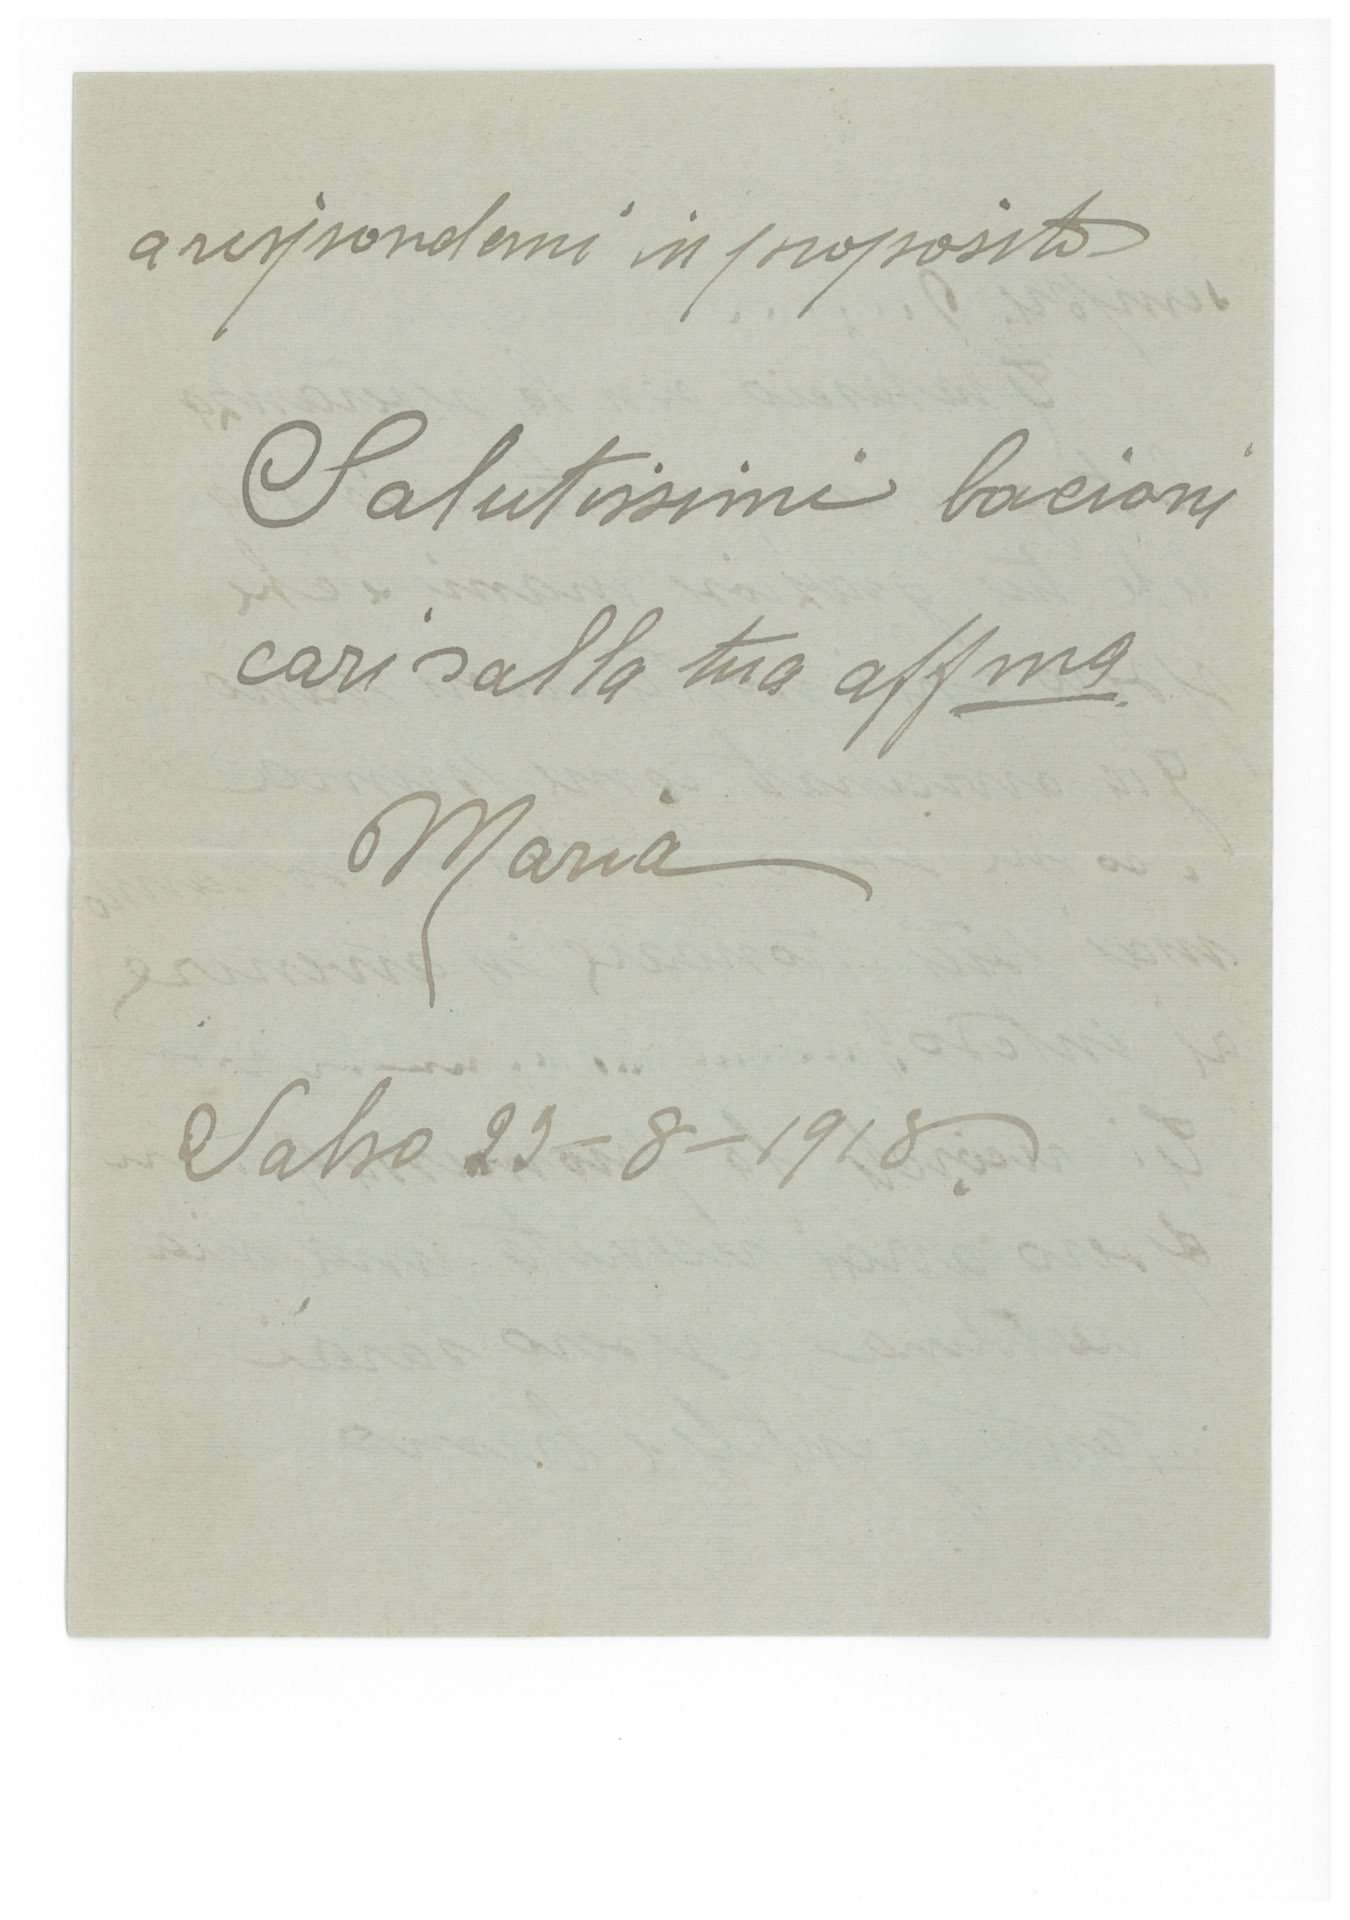 a rispondermi in proposito
Salutissimi bacioni
cari dalla tua affma
Maria
Salso 23-8-1918